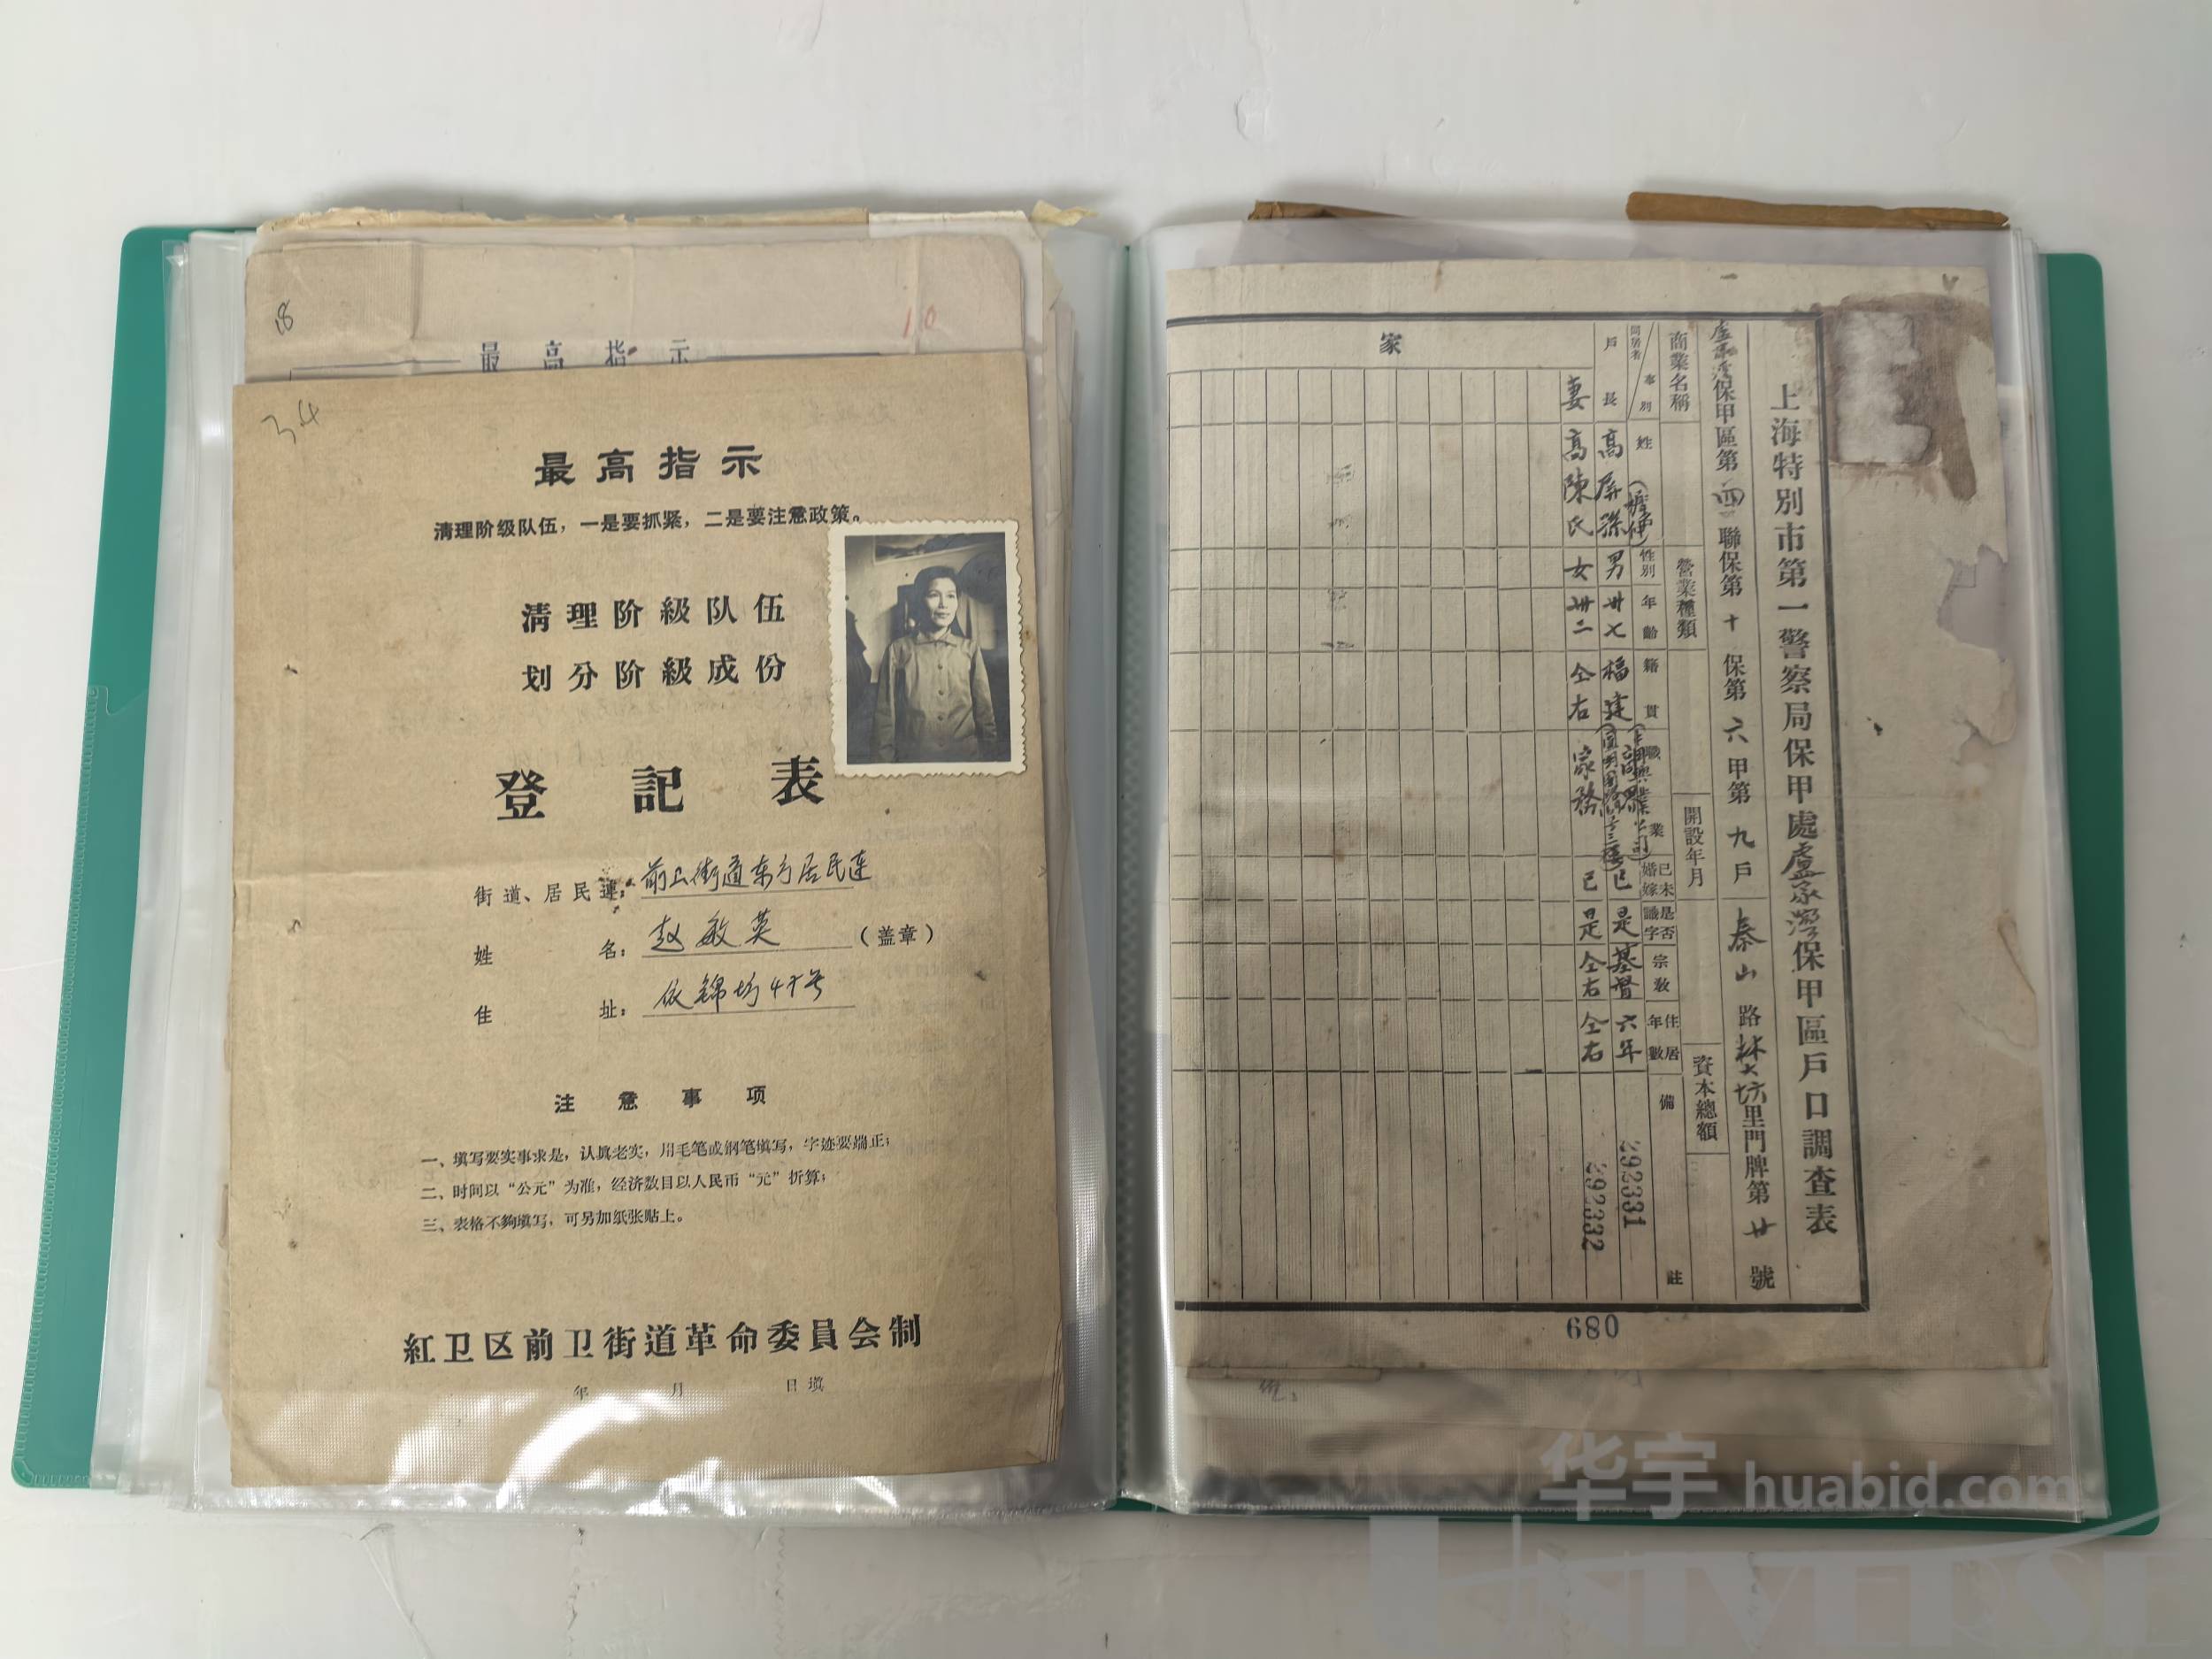 18
10
最高指示
34
最高指示
清理阶级队伍，一是要抓紧，二是要注意政策。
清理阶級队伍
划分阶級成份
登記表
街道、居民連：前卫街道东方居民连
姓名：赵敏英（盖章）
住址：衣錦坊47号
注意事项
一、填写要实事求是，认真老实，用毛笔或钢笔填写，字迹要端正；
二、时间以“公元”为准，经济数目以人民币“元”折算；
三、表格不夠填写，可另加纸张贴上。
紅卫区前卫街道革命委員会制
年 月 日填
上海特別市第一警察局保甲處盧家灣保甲區戶口調查表
盧家灣保甲區第四聯保第十保第六甲第九戶 泰山路林大坊里門牌第廿號
商業名稱 營業種類 開設年月 資本總額
同居者 事別 姓 性別 年齡 籍貫 職業 已未婚嫁 是否識字 宗教 住居年數 備註
戶長 高屏孫 男 卅七 福建 已 是 基督 六年 292331
妻 高陳氏 女 卅二 仝右 家務 已 是 仝右 仝右 292332
家
089
华宇 huabid.com
UNIVERSE